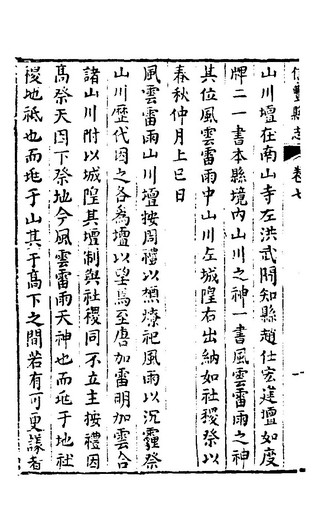 信豐縣志 卷七 一
山川壇在南山寺左洪武間知縣趙仕宏建壇如度
牌二一書本縣境內山川之神一書風雲雷雨之神
其位風雲雷雨中山川左城隍右出納如社稷祭以
春秋仲月上巳日
風雲雷雨山川壇按周禮以槱燎祀風雨以沉霾祭
山川歷代因之各爲壇以望焉至唐加雷明加雲合
諸山川附以城隍其壇制與社稷同不立主按禮因
高祭天因下祭地今風雲雷雨天神也而垗于地社
稷地祗也而垗于山其于高下之間若有可更議者